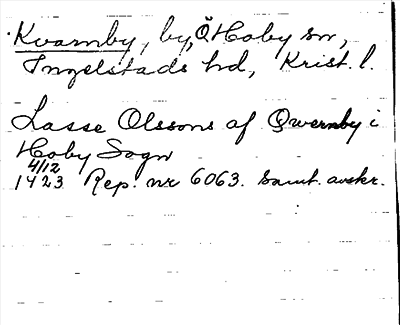 Kvarnby, by, Ö Hoby sn,
Ingelstads hd, Krist. l.
Lasse Olssons af Qwernby i
Hoby Sogn
4/12
1423 Rep. nr 6063. samt. avskr.